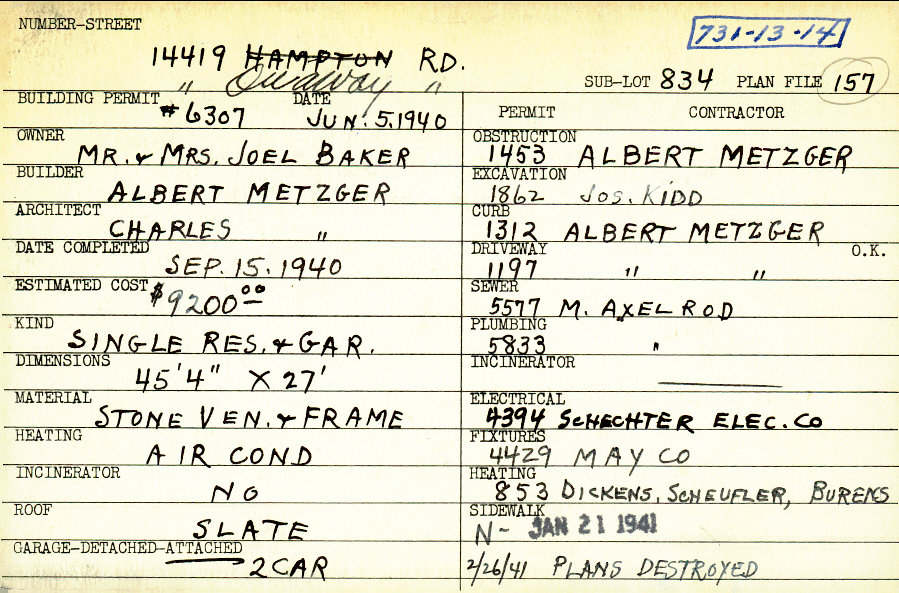 NUMBER-STREET
731-13-14
14419 HAMPTON RD.
" Onaway "
SUB-LOT 834 PLAN FILE 157
BUILDING PERMIT #6307 DATE JUN. 5. 1940
OWNER
MR. & MRS. JOEL BAKER
BUILDER
ALBERT METZGER
ARCHITECT
CHARLES "
DATE COMPLETED
SEP. 15. 1940
ESTIMATED COST $9200 00
KIND
SINGLE RES. & GAR.
DIMENSIONS
45'4" X 27'
MATERIAL
STONE VEN. & FRAME
HEATING
AIR COND
INCINERATOR
NO
ROOF
SLATE
GARAGE-DETACHED-ATTACHED
2 CAR
PERMIT CONTRACTOR
OBSTRUCTION
1453 ALBERT METZGER
EXCAVATION
1862 JOS. KIDD
CURB
1312 ALBERT METZGER
DRIVEWAY O.K.
1197 " "
SEWER
5577 M. AXELROD
PLUMBING
5833 "
INCINERATOR
ELECTRICAL
4394 SCHECHTER ELEC. CO
FIXTURES
4429 MAY CO
HEATING
853 DICKENS, SCHEUFLER, BURENS
SIDEWALK
N- JAN 21 1941
2/26/41 PLANS DESTROYED